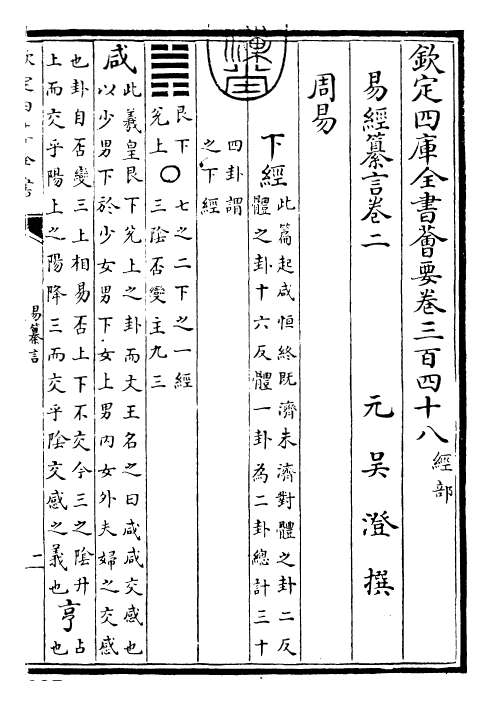 欽定四庫全書薈要卷三百四十八 經部
易經纂言卷二
元 吳澄 撰
周易
下經 此篇起咸恒終既濟未濟對體之卦二反
體之卦十六反體一卦為二卦總計三十
四卦謂
之下經
艮下 〇 七之二下之一經
兌上 三陰否變主九三
咸 此羲皇艮下兌上之卦而文王名之曰咸咸交感也
以少男下於少女男下女上男内女外夫婦之交感
也卦自否變三上相易否上下不交今三之陰升
上而交乎陽上之陽降三而交乎陰交感之義也 亨 占
也
易纂言
二